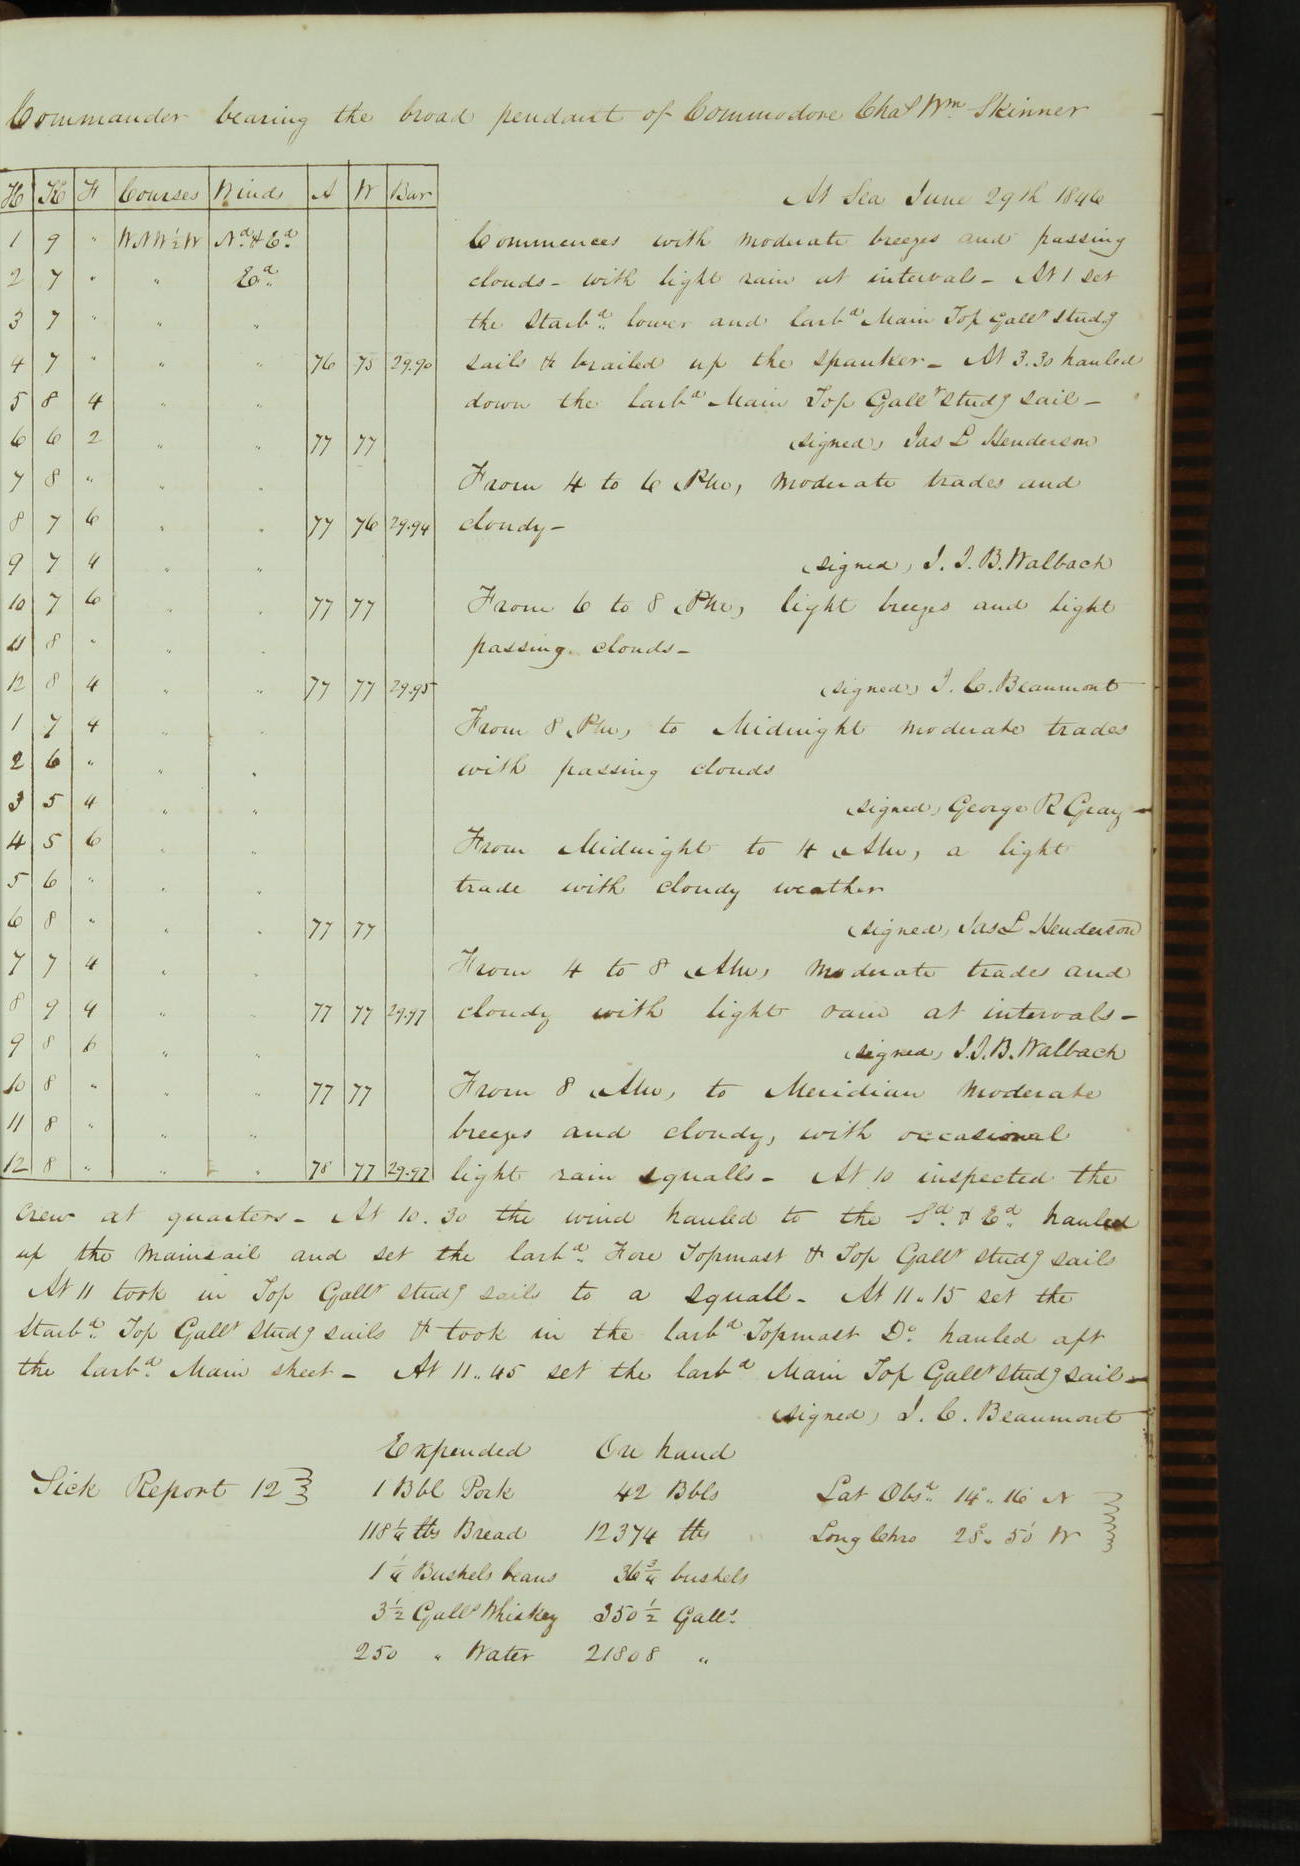 Commander bearing the broad pendant of Commodore Chas Wm Skinner
H K F Courses Winds A W Bar
1 9 " WNW½W Nd & Ed
2 7 " " Ed
3 7 " " "
4 7 " " " 76 75 29.90
5 8 4 " "
6 6 2 " " 77 77
7 8 " " "
8 7 6 " " 77 76 29.94
9 7 4 " "
10 7 6 " " 77 77
11 8 " " "
12 8 4 " " 77 77 29.95
1 7 4 " "
2 6 " " "
3 5 4 " "
4 5 6 " "
5 6 " " "
6 8 " " " 77 77
7 7 4 " "
8 9 4 " " 77 77 29.97
9 8 6 " "
10 8 " " " 77 77
11 8 " " "
12 8 " " " 78 77 29.97
At Sea June 29th 1846
Commences with moderate breezes and passing
clouds - with light rain at intervals - At 1 set
the Starbd. lower and larbd Main Top Gallt studg
sails & brailed up the spanker - At 3.30 hauled
down the larbd Main Top Gallt studg sail -
(signed) Jas L Henderson
From 4 to 6 PM, moderate trades and
cloudy -
(signed) J. J. B. Walbach
From 6 to 8 PM, light breezes and light
passing clouds -
(signed) J. C. Beaumont
From 8 PM, to Midnight moderate trades
with passing clouds
(signed) George R Gray -
From Midnight to 4 AM, a light
trade with cloudy weather
(signed) Jas L Henderson
From 4 to 8 AM, moderate trades and
cloudy with light rain at intervals -
(signed) J. J. B. Walbach
From 8 AM, to Meridian moderate
breezes and cloudy, with occasional
light rain squalls - At 10 inspected the
crew at quarters - At 10.30 the wind hauled to the Sd. & Ed. hauled
up the mainsail and set the larbd. Fore Topmast & Top Gallt studg sails
At 11 took in Top Gallt studg sails to a squall - At 11.15 set the
Starbd. Top Gallt studg sails & took in the larbd Topmast Do. hauled aft
the larbd. Main sheet - At 11.45 set the larbd Main Top Gallt studg sail -
(signed) J. C. Beaumont
Expended On hand
Sick Report 12 1 Bbl Pork 42 Bbls Lat Obsd. 14°.. 16' N
118¼ lbs Bread 12374 lbs Long Chro 28°. 50' W
1¼ Bushels beans 36¾ bushels
3½ Galls Whiskey 350½ Galls.
250 " Water 21808 "